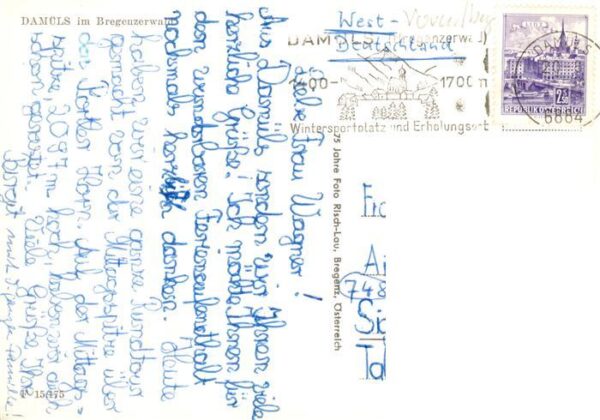 DAMÜLS im Bregenzerwald
West-
Deutschland
DAMÜLS (Bregenzerwald)
1400-
1700 m
Wintersportplatz und Erholungsort
LINZ
2.-
REPUBLIK ÖSTERREICH
6884
Liebe Frau Wagner!
Aus Damüls senden wir Ihnen viele
herzliche Grüße! Ich möchte Ihnen für
den wunderbaren Ferienaufenthalt
nochmals herzlich danken. Heute
haben wir eine ganze Rundtour
gemacht von der Mittagspitze über
das Horn. Auf der Mittags=
spitze, 2097 m hoch, haben wir auch
schön gerastet. Viele Grüße Ihr
Birgit mit Familie!
75 Jahre Foto Risch-Lau, Bregenz, Österreich
Fr
Ai
748
Si
To
F 15175